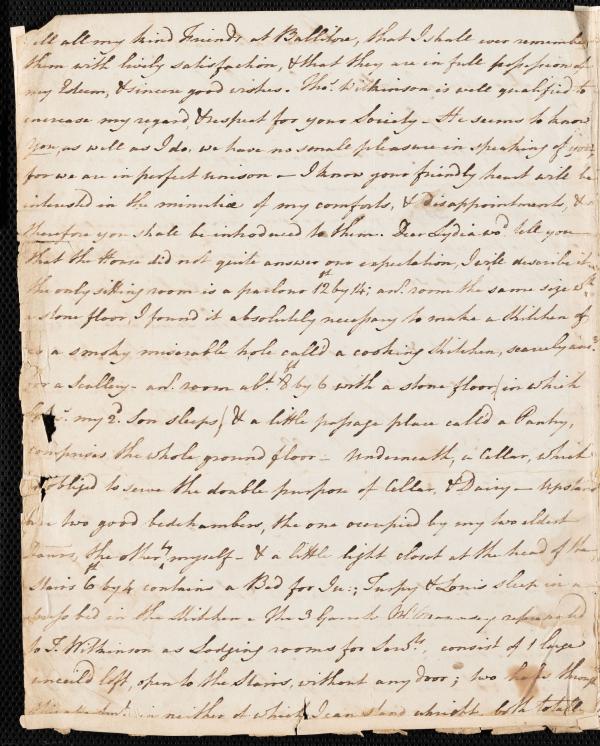 tell all my kind Friends at Ballitore, that I shall ever remember
them with lively satisfaction, & that they are in full possession of
my Esteem, & sincere good wishes. Thos. Wilkinson is well qualified to
increase my regard, & respect for your Society - He seems to know
you, as well as I do, we have no small pleasure in speaking of you
for we are in perfect unison - I know your friendly heart will be
interested in the minutiæ of my comforts, & disappointments, &
therefore you shall be introduced to them. Dear Lydia wod. tell you
that the House did not quite answer our expectation, I will describe it
the only sitting room is a parlour 12 ft by 14; anr. room the same size wth
a stone floor, I found it absolutely necessary to make a Kitchen of
as a smoky miserable hole called a cooking Kitchen, scarcely
for a Scullery - anr. room abt. 8 ft by 6 with a stone floor (in which
my 2d. Son sleeps) & a little passage place call'd a Pantry,
comprises the whole ground floor - Underneath, a Cellar, which
obliged to serve the double purpose of Cellar, & Dairy - Upstairs
are two good bedchambers, the one occupied by my two eldest
the other by myself - & a little light closet at the head of the
Stairs 6 ft by 4 contains a Bed for & Louis sleep in a
press bed in the Kitchen - The 3 Garrets
to T. Wilkinson as Lodging rooms for Servts., consist of 1 large
unceil'd loft, open to the Stairs, without any door; two holes through
in neither of which I can stand upright, both